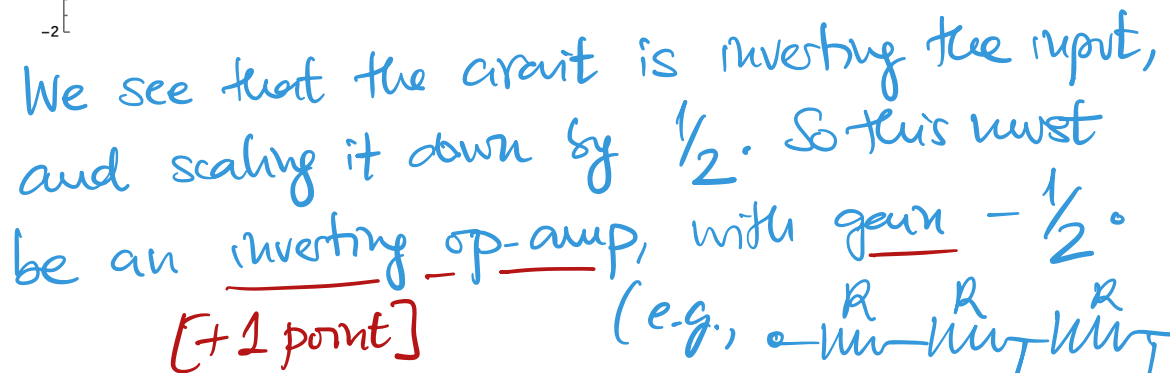 -2
We see that the circuit is inverting the input,
and scaling it down by 1/2. So this must
be an inverting op-amp, with gain -1/2.
[+1 point] (e.g., R R R